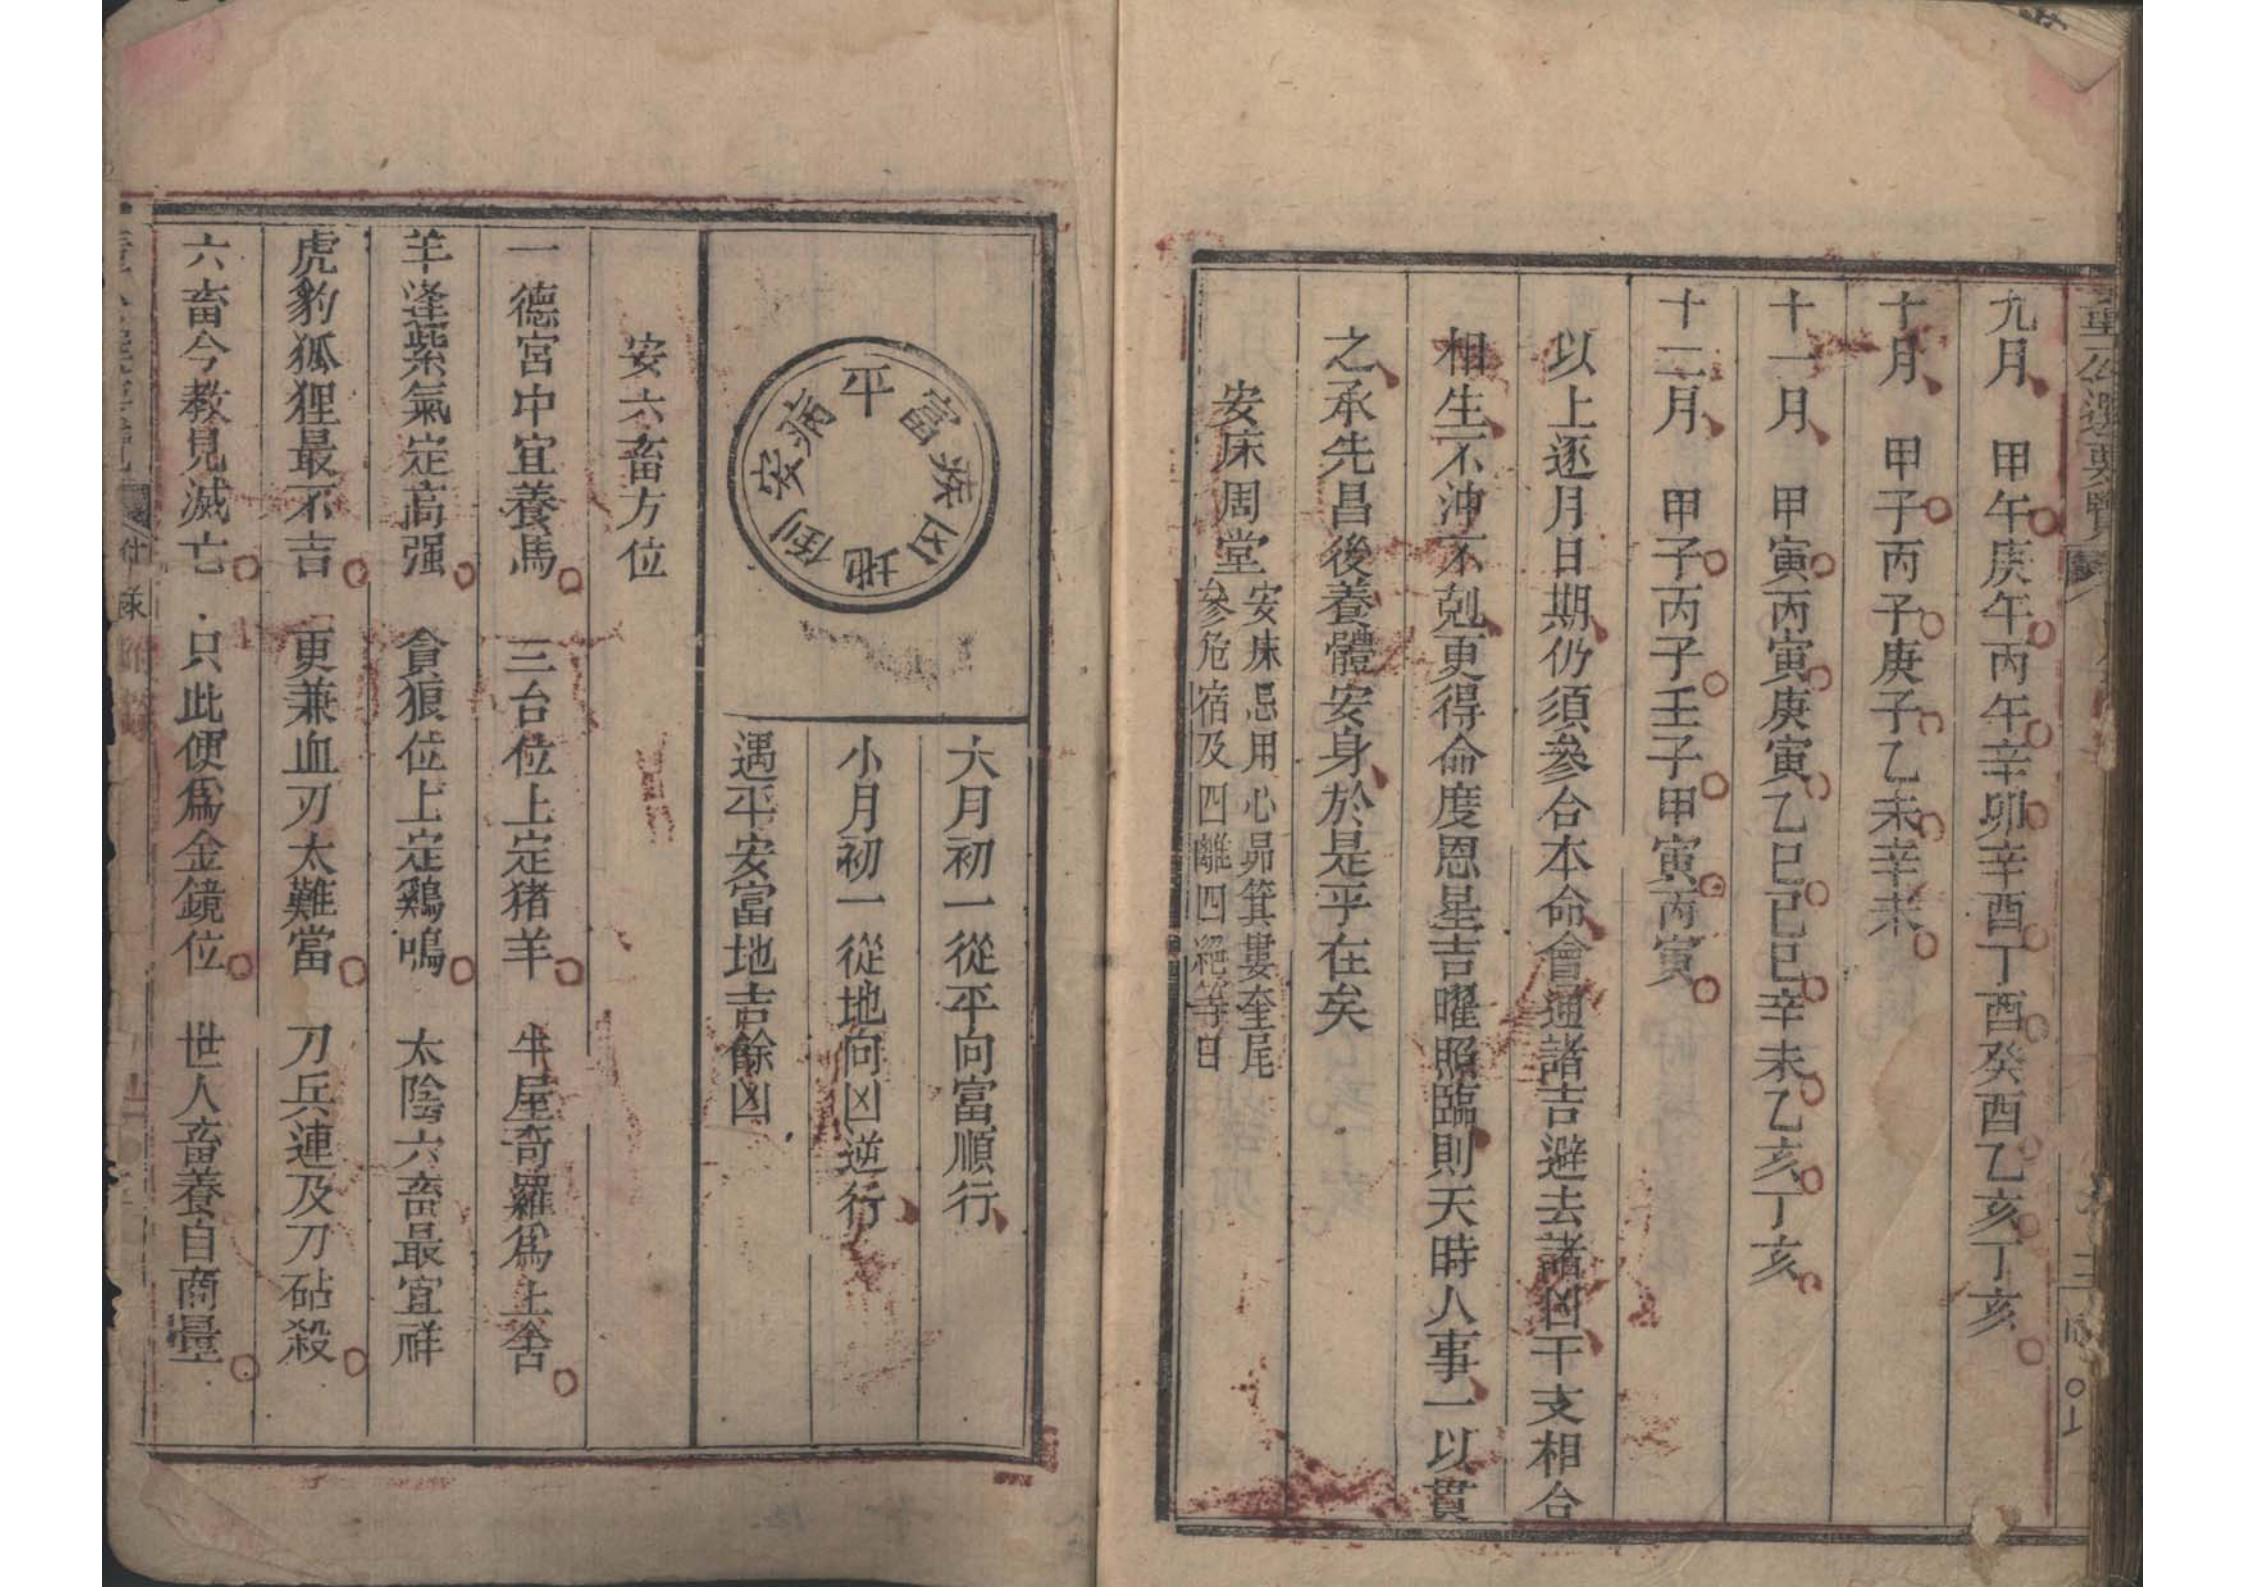 董公選要覽
九月 甲午庚午丙午辛卯辛酉丁酉癸酉乙亥丁亥
十月 甲子丙子庚子乙未辛未
十一月 甲寅丙寅庚寅乙巳己巳辛未乙亥丁亥
十二月 甲子丙子壬子甲寅丙寅
以上逐月日期仍須參合本命會通諸吉避去諸凶干支相合
相生不沖不剋更得命度恩星吉曜照臨則天時人事一以貫
之承先昌後養體安身於是乎在矣
安床周堂 安床忌用心昴箕婁奎尾
參危宿及四離四絕等日
平富族凶地倒安病
大月初一從平向富順行
小月初一從地向凶逆行
遇平安富地吉餘凶
安六畜方位
一德宮中宜養馬 三台位上定猪羊 牛屋奇羅爲上舍
羊逢紫氣定高强 貪狼位上定鷄鳴 太陰六畜最宜祥
虎豹狐狸最不吉 更兼血刃太難當 刀兵連及刀砧殺
六畜今教見滅亡 只此便爲金鏡位 世人畜養自商量